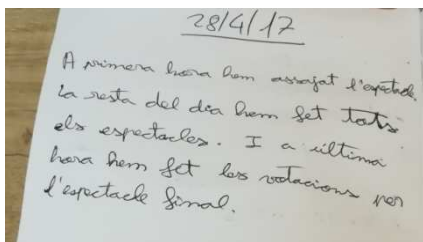 28/4/17
A primera hora hem assajat l'espectacle.
La resta del dia hem fet tots
els espectacles. I a última
hora hem fet les votacions per
l'espectacle final.